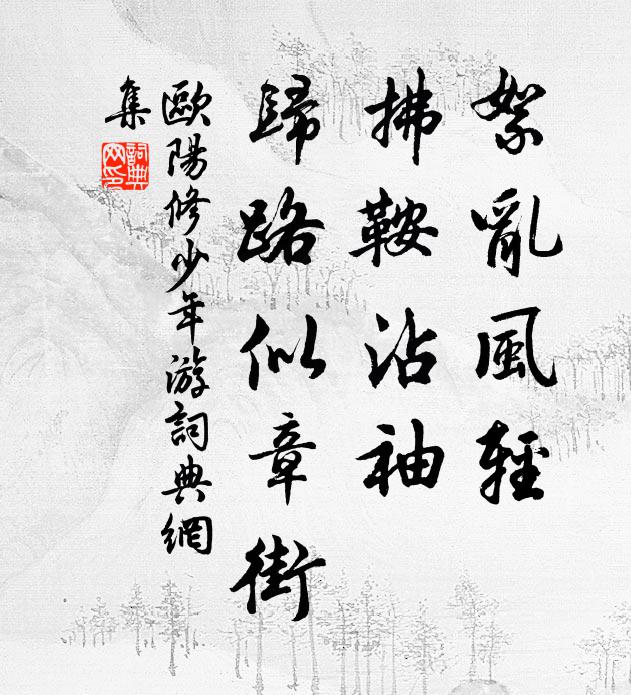 絮亂風輕
拂鞍沾袖
歸路似章街
歐陽修少年游詞典網
集
詞典網印